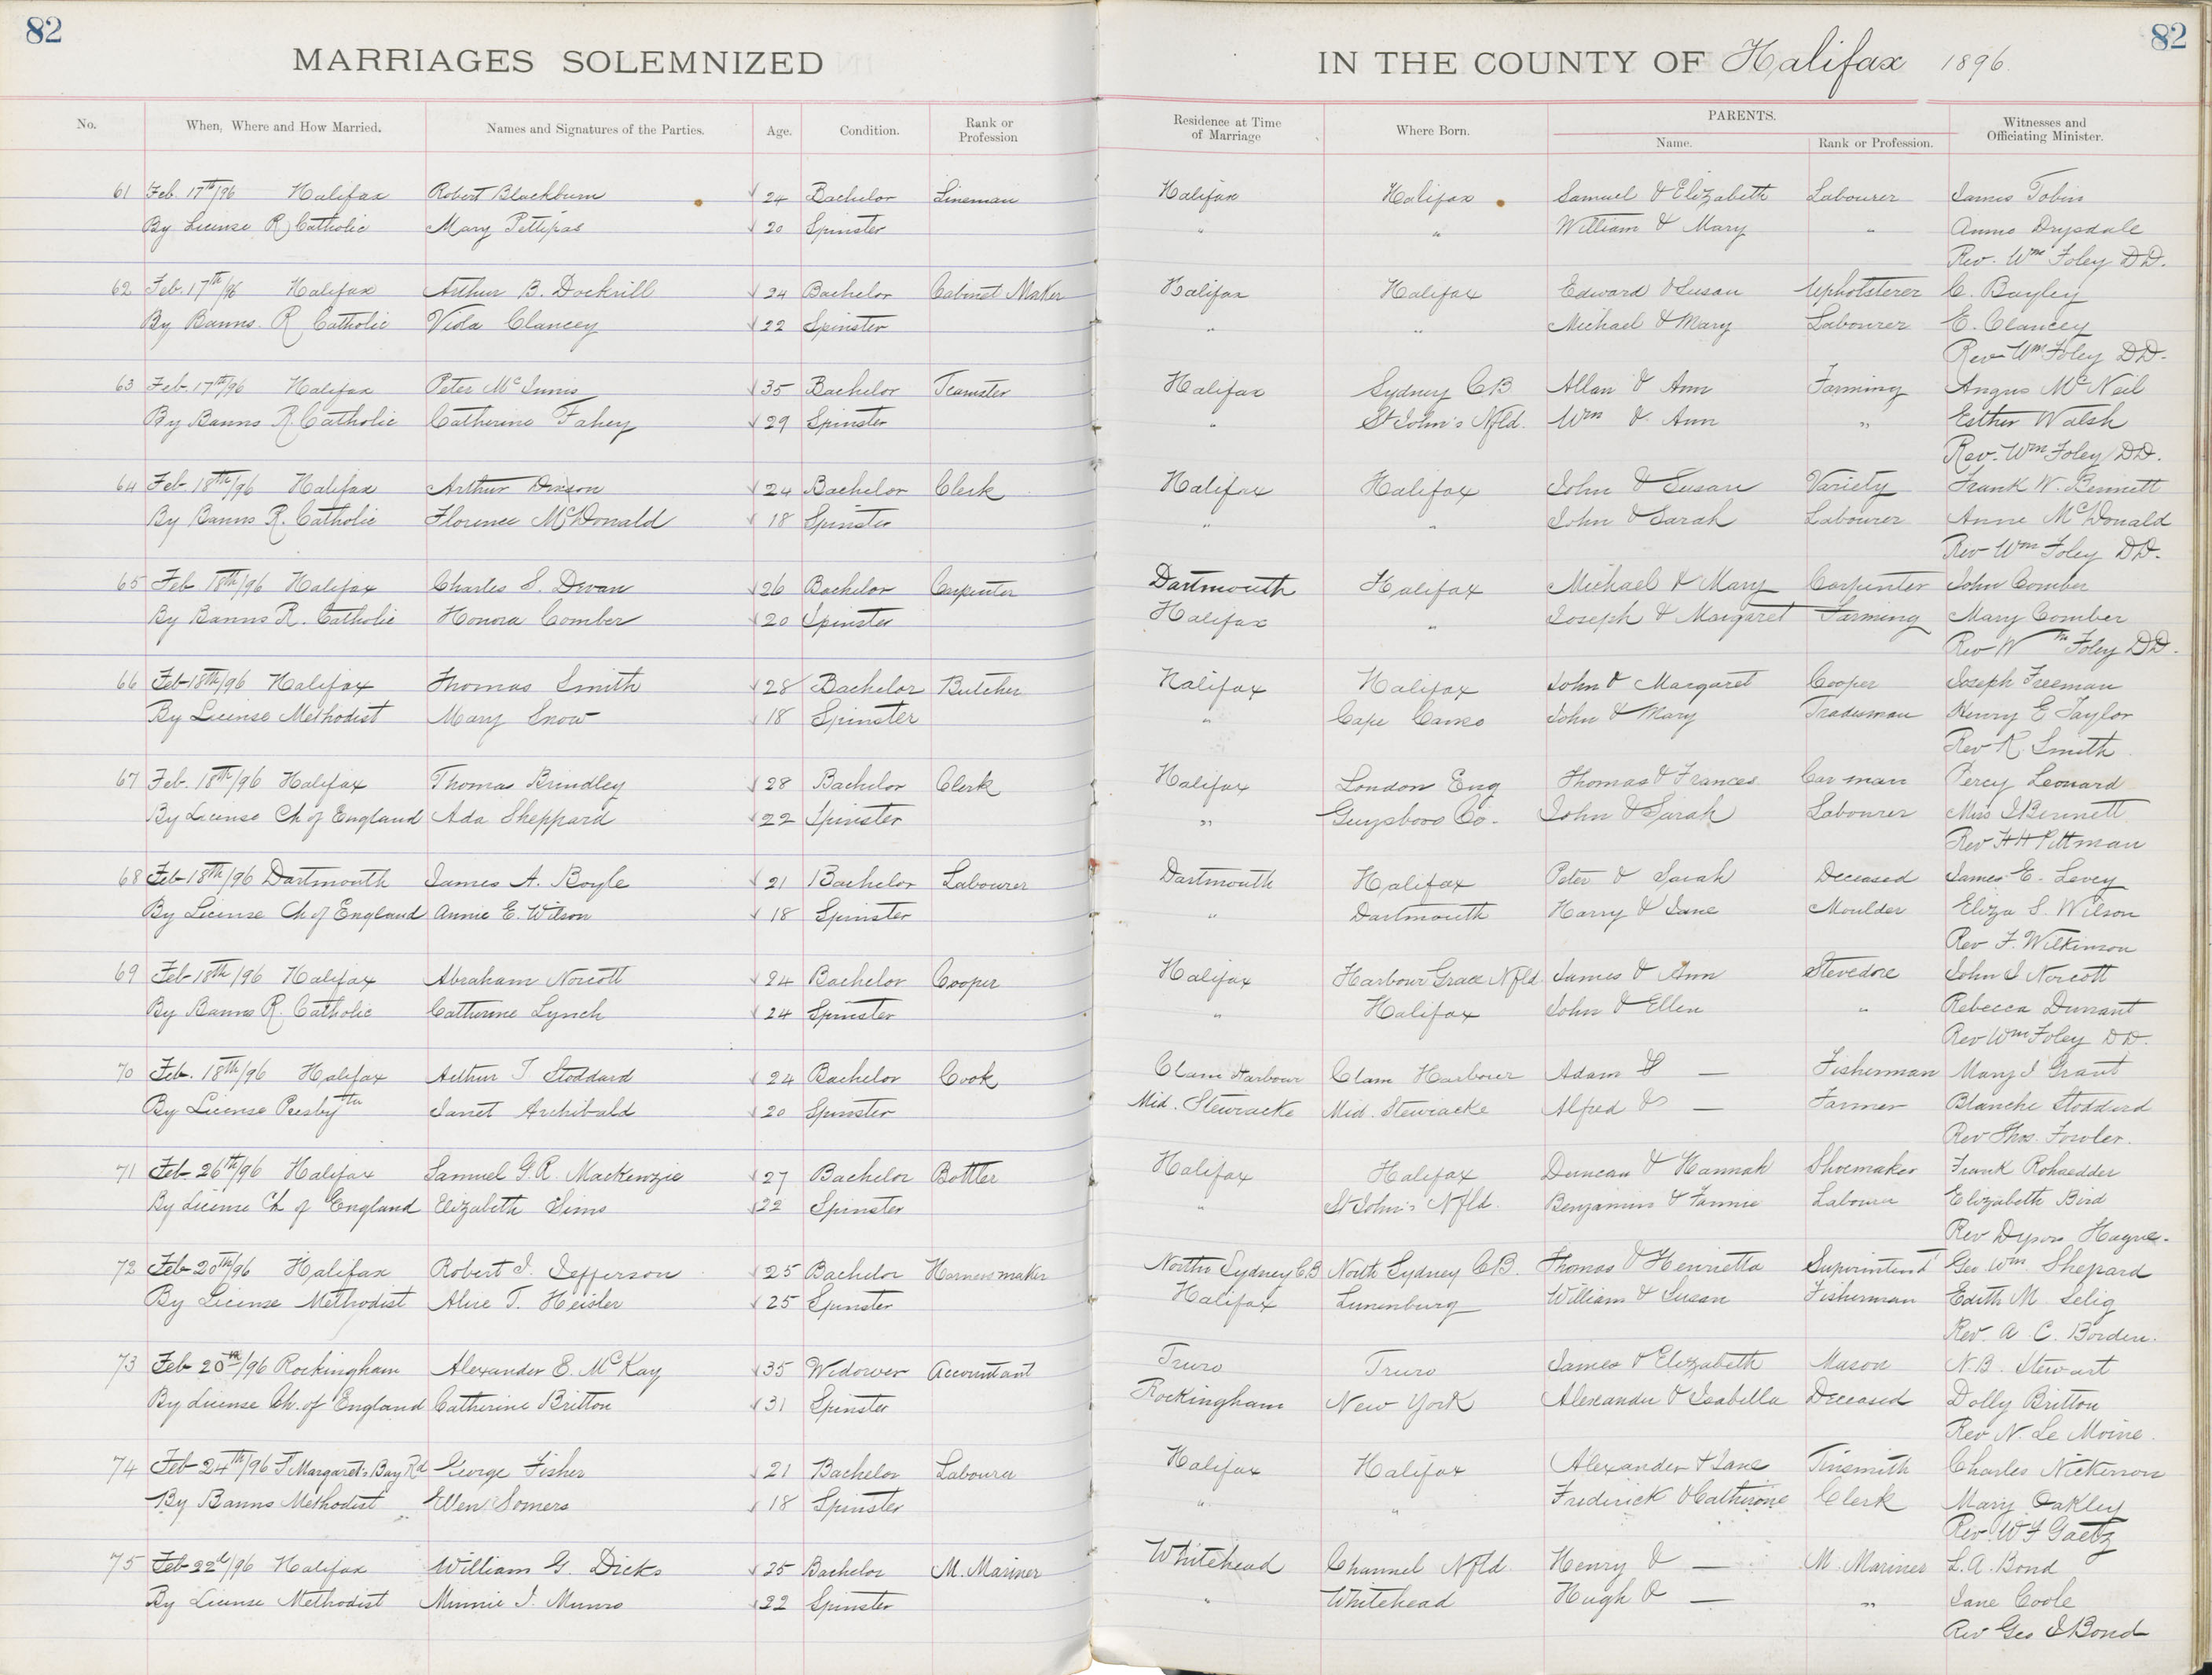 82 82
MARRIAGES SOLEMNIZED IN THE COUNTY OF Halifax 1896.
No. When, Where and How Married. Names and Signatures of the Parties. Age. Condition. Rank or Profession Residence at Time of Marriage Where Born. PARENTS. Name. Rank or Profession. Witnesses and Officiating Minister.
61 Feb. 17th/96 Halifax Robert Blackburn 24 Bachelor Lineman Halifax Halifax Samuel & Elizabeth Labourer James Tobin
By License R Catholic Mary Pettipas 20 Spinster " " William & Mary " Annie Drysdale
Rev. Wm Foley DD.
62 Feb. 17th/96 Halifax Arthur B. Dockrill 24 Bachelor Cabinet Maker Halifax Halifax Edward & Susan Upholsterer C. Bayley
By Banns. R Catholic Viola Clancey 22 Spinster " " Michael & Mary Labourer E. Clancey
Rev Wm Foley DD.
63 Feb. 17th/96 Halifax Peter McInnis 35 Bachelor Teamster Halifax Sydney CB Allan & Ann Farming Angus McNeil
By Banns R. Catholic Catherine Fahey 29 Spinster " St John's Nfld. Wm & Ann " Esther Walsh
Rev. Wm Foley DD.
64 Feb. 18th/96 Halifax Arthur Dixson 24 Bachelor Clerk Halifax Halifax John & Susan Variety Frank W. Bennett
By Banns R. Catholic Florence McDonald 18 Spinster " " John & Sarah Labourer Anne McDonald
Rev Wm Foley DD.
65 Feb 18th/96 Halifax Charles S. Devan 26 Bachelor Carpenter Dartmouth Halifax Michael & Mary Carpenter John Comber
By Banns R. Catholic Honora Comber 20 Spinster Halifax " Joseph & Margaret Farming Mary Comber
Rev Wm Foley DD.
66 Feb 18th/96 Halifax Thomas Smith 28 Bachelor Butcher Halifax Halifax John & Margaret Cooper Joseph Freeman
By License Methodist Mary Snow 18 Spinster " Cape Canso John & Mary Tradesman Henry E Taylor
Rev R. Smith
67 Feb. 18th/96 Halifax Thomas Brindley 28 Bachelor Clerk Halifax London Eng Thomas & Frances Car man Percy Leonard
By License Ch of England Ada Sheppard 22 Spinster " Guysboro Co. John & Sarah Labourer Miss I Bennett
Rev HH Pittman
68 Feb 18th/96 Dartmouth James A. Boyle 21 Bachelor Labourer Dartmouth Halifax Peter & Sarah Deceased James E. Levey
By License Ch of England Annie E. Wilson 18 Spinster " Dartmouth Harry & Jane Moulder Eliza S. Wilson
Rev F. Wilkinson
69 Feb 18th/96 Halifax Abraham Norcott 24 Bachelor Cooper Halifax Harbour Grace Nfld James & Ann Stevedore John J Norcott
By Banns R. Catholic Catherine Lynch 24 Spinster " Halifax John & Ellen " Rebecca Durrant
Rev Wm Foley DD.
70 Feb. 18th/96 Halifax Arthur T Stoddard 24 Bachelor Cook Clam Harbour Clam Harbour Adam & — Fisherman Mary J Grant
By License Presbytn Janet Archibald 20 Spinster Mid. Stewiacke Mid. Stewiacke Alfred & — Farmer Blanche Stoddard
Rev Thos. Fowler.
71 Feb 26th/96 Halifax Samuel G.R. Mackenzie 27 Bachelor Bottler Halifax Halifax Duncan & Hannah Shoemaker Frank Rohaedder
By License Ch of England Elizabeth Sims 22 Spinster " St John's Nfld. Benjamin & Fannie Labourer Elizabeth Bird
Rev Dyson Hague.
72 Feb 20th/96 Halifax Robert J. Jefferson 25 Bachelor Harness maker North Sydney C.B North Sydney CB. Thomas & Henrietta Superintend Geo Wm Shepard
By License Methodist Alice T. Heisler 25 Spinster Halifax Lunenburg William & Susan Fisherman Edith M Selig
Rev. A. C. Borden.
73 Feb 20th/96 Rockingham Alexander E. McKay 35 Widower Accountant Truro Truro James & Elizabeth Mason N.B. Stewart
By License Ch. of England Catherine Britton 31 Spinster Rockingham New York Alexander & Isabella Deceased Dolly Britton
Rev N. Le Moine.
74 Feb 24th/96 St Margarets Bay Rd George Fisher 21 Bachelor Labourer Halifax Halifax Alexander & Jane Tinsmith Charles Nickerson
By Banns Methodist Ellen Somers 18 Spinster " " Frederick & Catherine Clerk Mary Oakley
Rev W F Gaetz
75 Feb 22d/96 Halifax William G. Dicks 25 Bachelor M. Mariner Whitehead Channel Nfld Henry & — M. Mariner L. A. Bond
By License Methodist Minnie J. Munro 22 Spinster " Whitehead Hugh & — " Jane Coole
Rev Geo J Bond